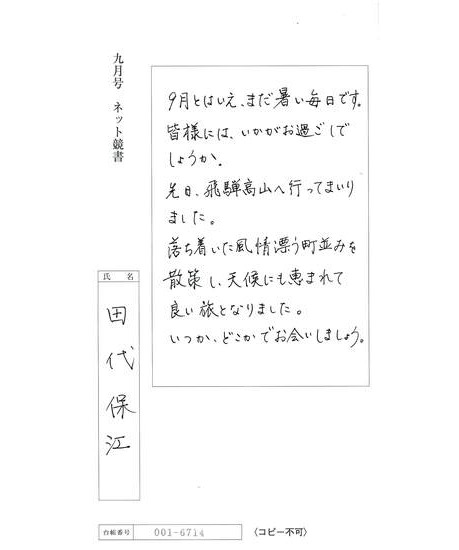 九月号 ネット競書
9月とはいえ、まだ暑い毎日です。
皆様には、いかがお過ごしで
しょうか。
先日、飛騨高山へ行ってまいり
ました。
落ち着いた風情漂う町並みを
散策し、天候にも恵まれて
良い旅となりました。
いつか、どこかでお会いしましょう。
氏名
田代保江
台帳番号 001-6714
〈コピー不可〉